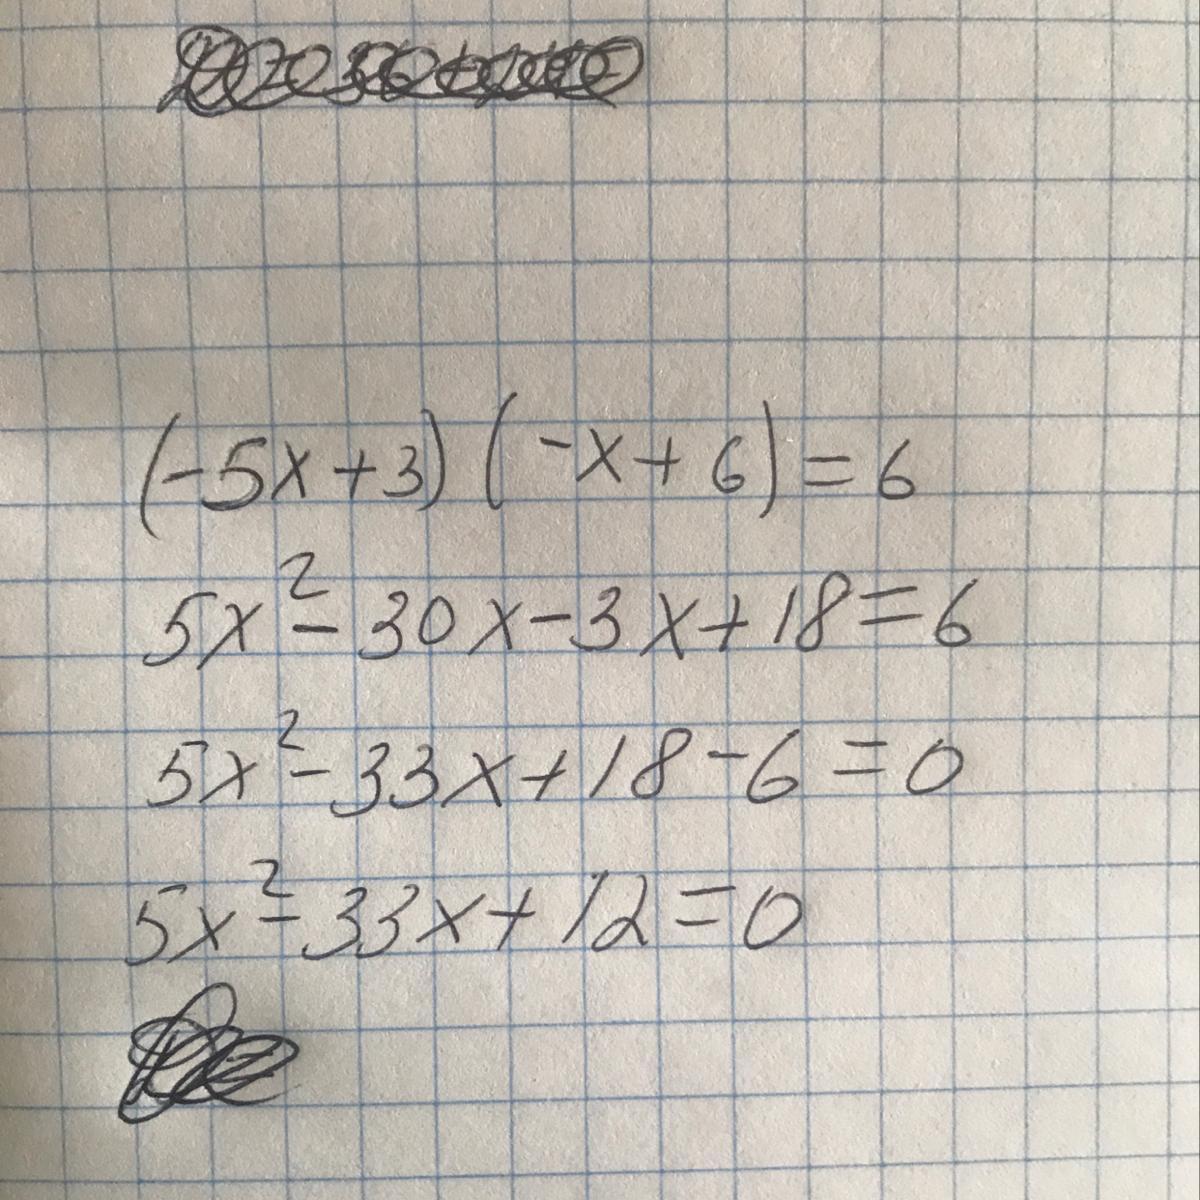 (-5x+3)(-x+6)=6
5x²-30x-3x+18=6
5x²-33x+18-6=0
5x²-33x+12=0